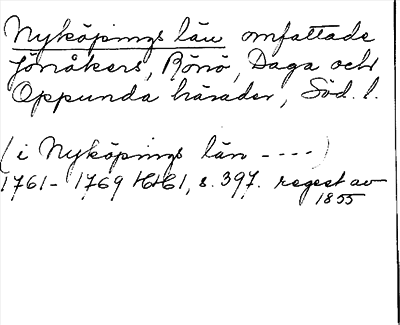 Nyköpings län omfattade
Jönåkers, Rönö, Daga och
Oppunda härader, Söd. l.
(i Nyköpings län ----)
1761-1769 HH1, s. 397. regest av
1855